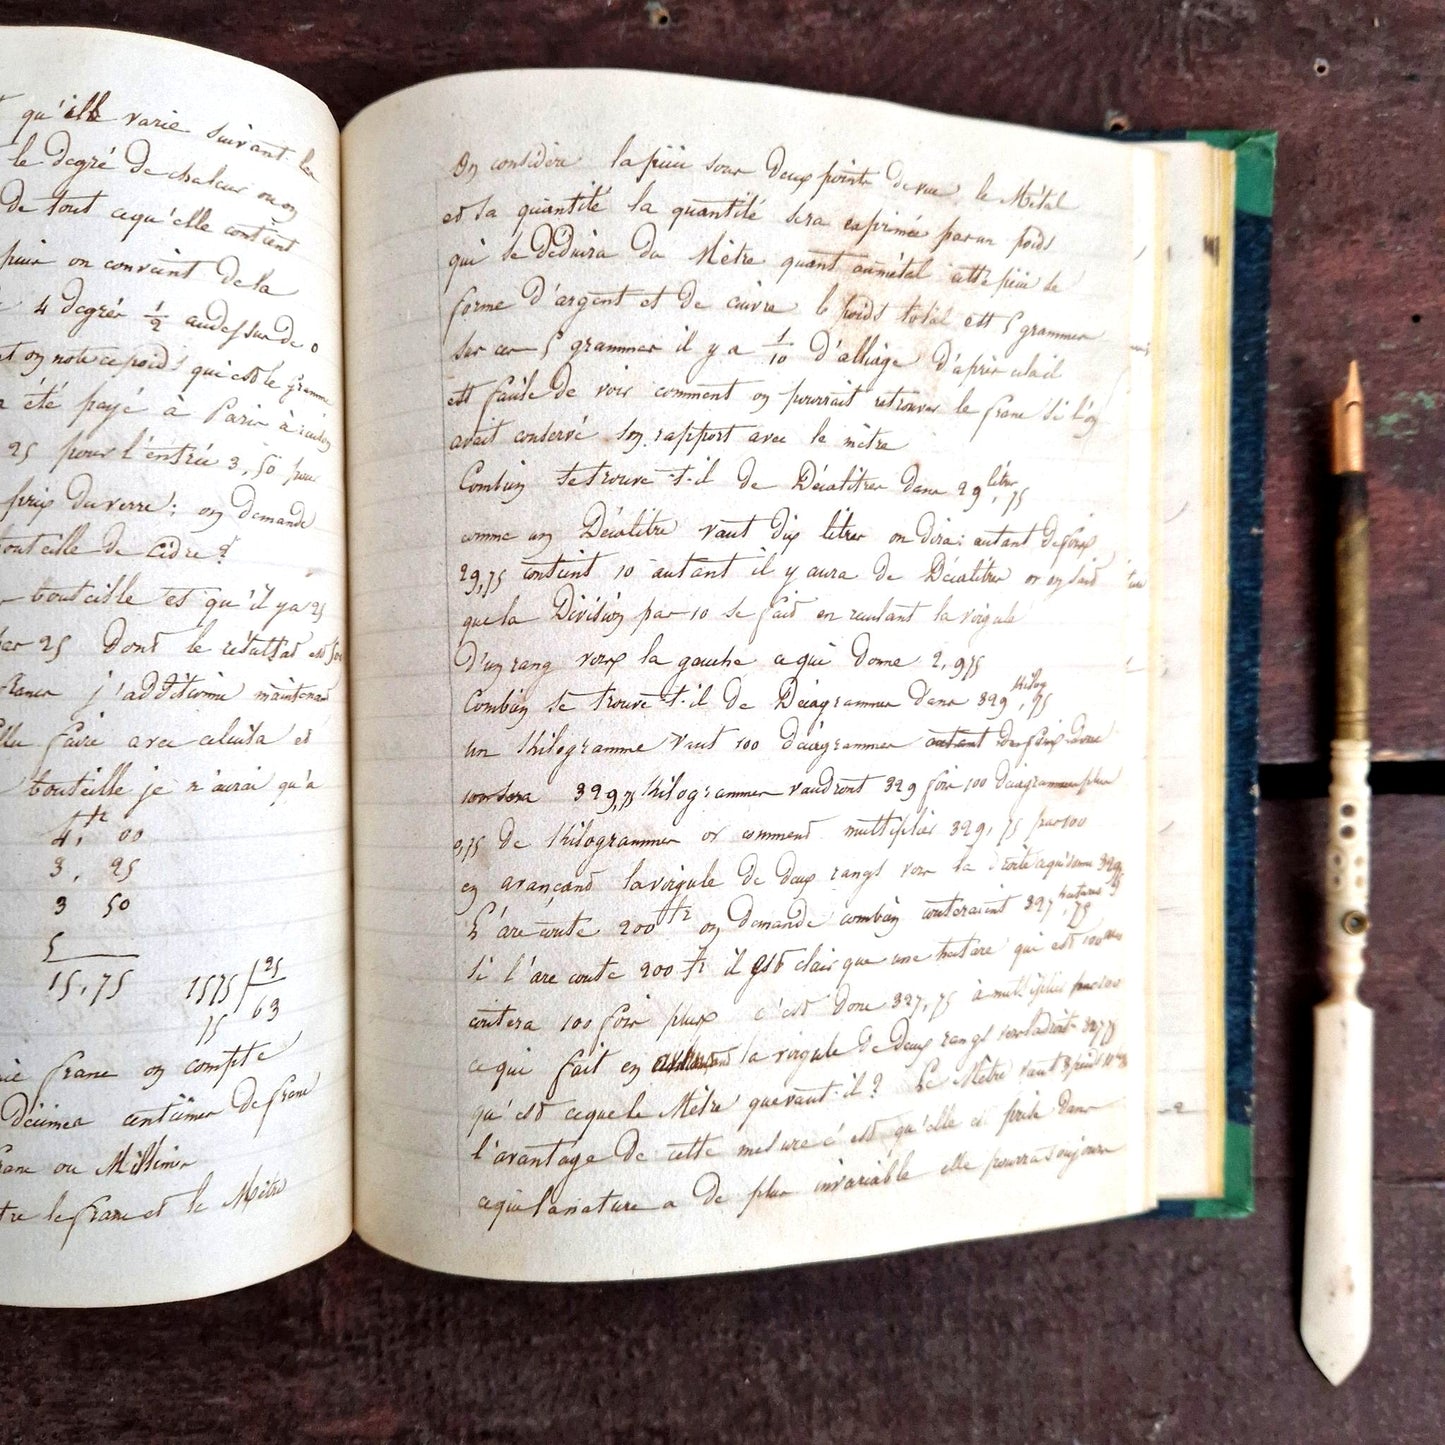 qu'elle varie suivant le
le degré de chaleur ou on
De tout cequ'elle contient
on convient De la
4 degrés 1/2 audessus De 0
et on note ce poids qui est le gramme
a été payé à Paris à raison
25 pour l'entrée 3,50 pour
prix du verre ; on demande
bouteille de Cidre ?
bouteille et qu'il y a 25
par 25 Dont le résultat est
francs j'additionne maintenant
faire avec celuila et
bouteille je n'aurai qu'a
4, fr 00
3, 25
3 50
5
15,75 1575 | 25
75 63
franc on compte
Décimes centimes De franc
franc ou Millimes
le franc et le Mètre
On considère la pièce sous Deux points De vue, le Métal
et sa quantité la quantité sera exprimée par un poids
qui se Déduira Du Mètre quant au métal cette pièce se
forme D'argent et De cuivre le poids total est 5 grammes
sur ces 5 grammes il y a 1/10 D'alliage D'après cela il
est facile De voir comment on pourrait retrouver le franc si l'on
avait conservé son rapport avec le mètre
Combien se trouve-t-il de Décalitres dans 29 litres, 75
comme un Décalitre vaut Dix litres on dira: autant De fois
29,75 contient 10 autant il y aura De Décalitres or on sait
que la Division par 10 se fait en reculant la virgule
D'un rang vers la gauche ce qui Donne 2,975
Combien se trouve-t-il De Décagrammes Dans 329 kilog, 75
un Kilogramme Vaut 100 décagrammes autant De fois
329,75 Kilogrammes vaudront 329 fois 100 Décagrammes plus
0,75 De Kilogrammes or comment multiplier 329,75 par 100
en avançant la virgule de deux rangs vers la droite ce qui donne
L'are coute 200 fr on Demande combien couteraient 327 hectares, 75
Si l'are coute 200 fr il est clair que une hectare qui est 100 ares
coutera 100 fois plus c'est Donc 327,75 à multiplier par 100
ce qui fait en la virgule De Deux rangs vers la droite
qu'est ce que le Mètre que vaut-il ? Le Mètre vaut 3 pieds
l'avantage De cette mesure c'est qu'elle est prise Dans
ce que la nature a De plus invariable elle pourra toujours